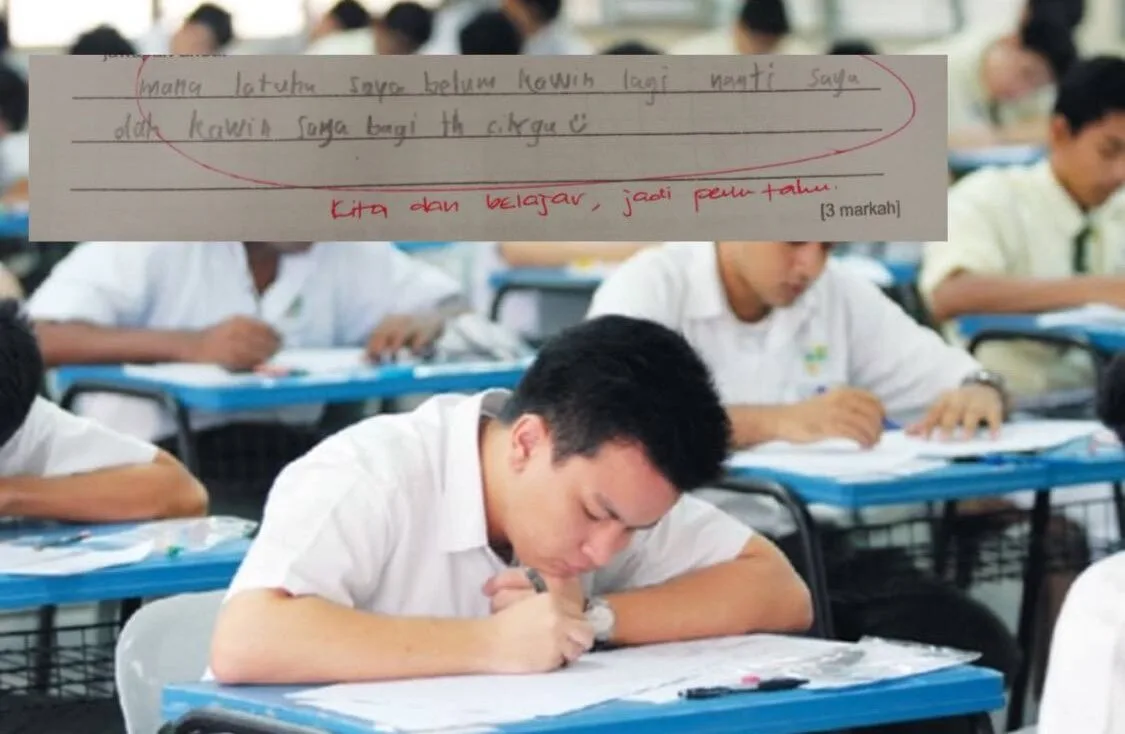 mana latuhu saya belum kawin lagi nanti saya
dah kawin saya bagi th cikgu
Kita dah belajar, jadi perlu tahu.
[3 markah]